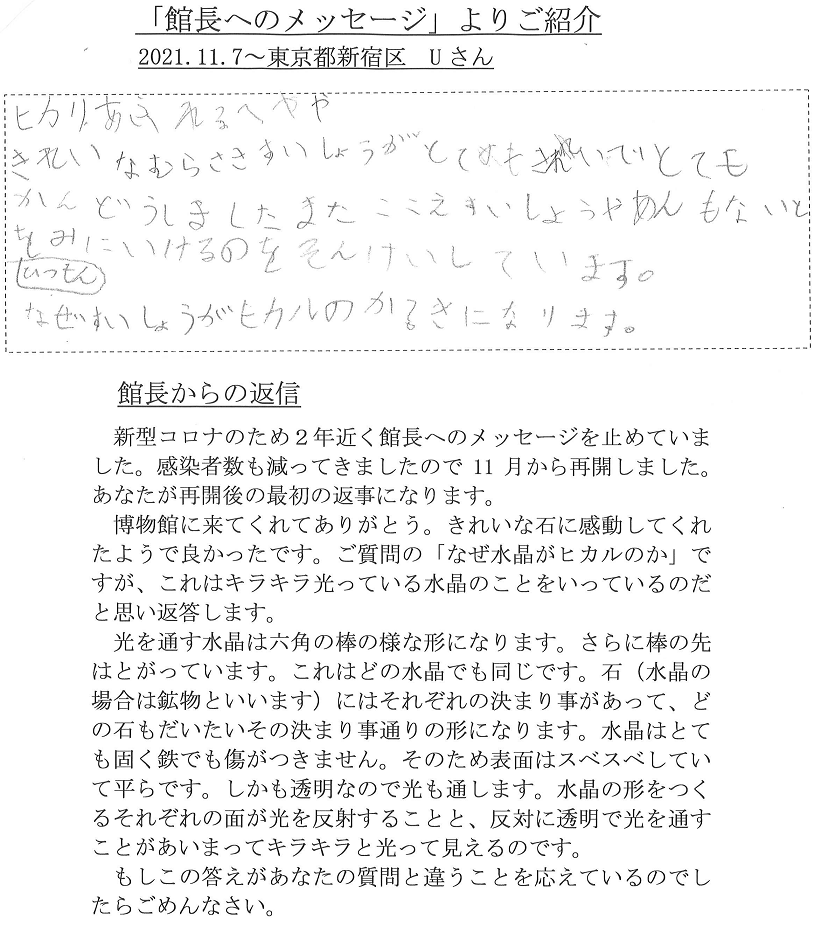 「館長へのメッセージ」よりご紹介
2021.11.7～東京都新宿区　Uさん
ヒカリあふれるへやや
きれいなむらささすいしょうがとても きれいでいとても
かんどうしましたまたここえすいしょうやあんもないと
をみにいけるのをそんけいしています。
しつもん
なぜすいしょうがヒカルのかるきになります。
館長からの返信
　新型コロナのため２年近く館長へのメッセージを止めていま
した。感染者数も減ってきましたので 11 月から再開しました。
あなたが再開後の最初の返事になります。
　博物館に来てくれてありがとう。きれいな石に感動してくれ
たようで良かったです。ご質問の「なぜ水晶がヒカルのか」で
すが、これはキラキラ光っている水晶のことをいっているのだ
と思い返答します。
　光を通す水晶は六角の棒の様な形になります。さらに棒の先
はとがっています。これはどの水晶でも同じです。石（水晶の
場合は鉱物といいます）にはそれぞれの決まり事があって、ど
の石もだいたいその決まり事通りの形になります。水晶はとて
も固く鉄でも傷がつきません。そのため表面はスベスベしてい
て平らです。しかも透明なので光も通します。水晶の形をつく
るそれぞれの面が光を反射することと、反対に透明で光を通す
ことがあいまってキラキラと光って見えるのです。
　もしこの答えがあなたの質問と違うことを応えているのでし
たらごめんなさい。